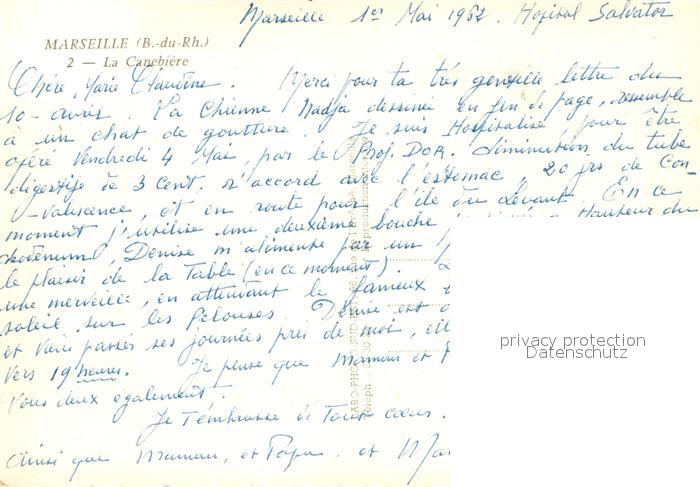 Marseille 1er Mai 1962. Hopital Salvator
MARSEILLE (B.-du-Rh.)
2 — La Canebière
Chère Marie Claudine. Merci pour ta très gentille lettre du
10 avril. La Chienne Nadja dessinée en fin de page, ressemble
à un chat de gouttière. Je suis Hospitalisé, pour être
opéré Vendredi 4 Mai, par le Prof. DOR. diminution du tube
digestif de 3 cent. raccord avec l'estomac, 20 jrs de Con-
-valescence, et en route pour l'île du levant. En ce
moment j'utilise une deuxième bouche Hauteur du
duodenum, Denise m'alimente par un
le plaisir de la Table (en ce moment).
une merveille, en attendant le fameux
soleil sur les Pelouses. Denise est
et vient passer ses journées près de moi,
vers 19 heures. Je pense que maman et
Vous deux également.
Je t'embrasse de Tout cœur.
Ainsi que maman, et Papa, et
privacy protection
Datenschutz